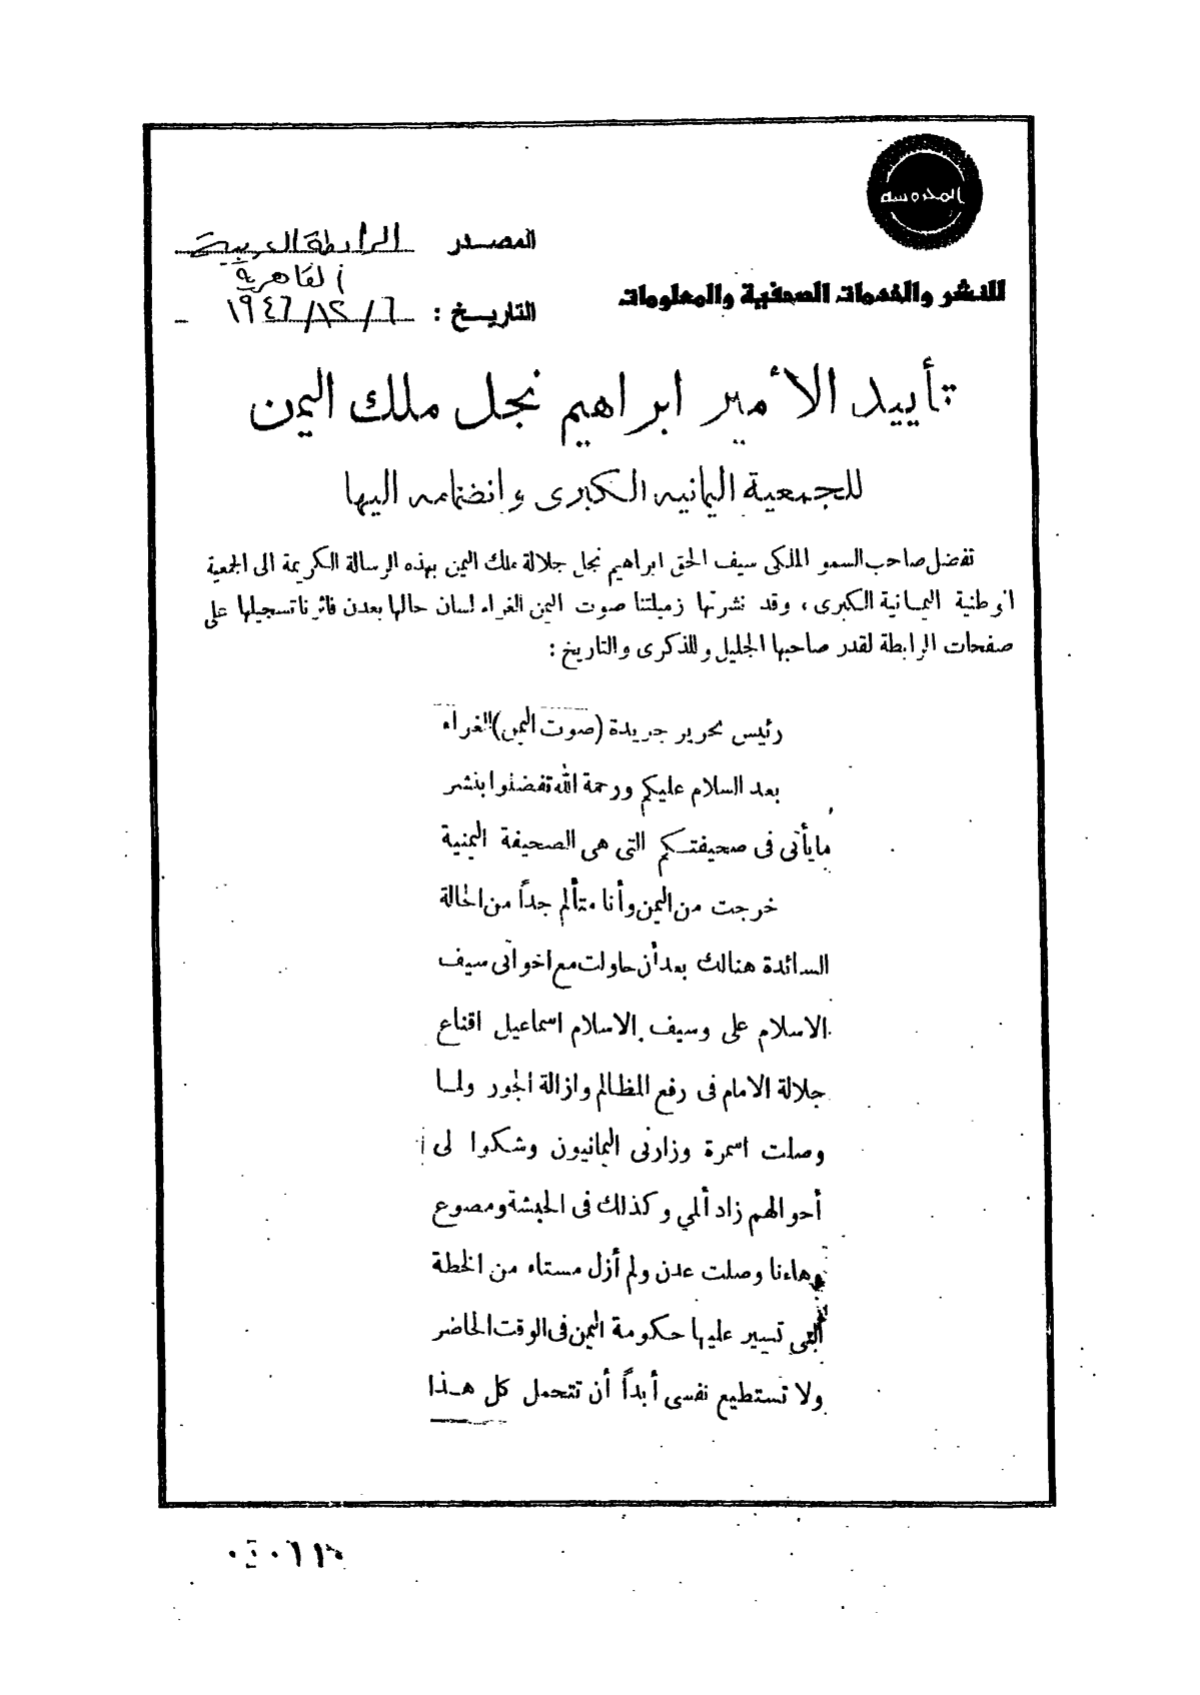 المحروسه
للنشر والخدمات الصحفية والمعلومات
المصدر الرابطة العربية
القاهرية
التاريخ : ٦/١٢/١٩٤٦
تأييد الأمير ابراهيم نجل ملك اليمن
للجمعية اليمانيه الكبرى وانضمامه اليها
تفضل صاحب السمو الملكى سيف الحق ابراهيم نجل جلالة ملك اليمن بهذه الرسالة الكريمة الى الجمعية
الوطنية اليمانية الكبرى ، وقد نشرتها زميلتنا صوت اليمن الغراء لسان حالها بعدن فآثرنا تسجيلها على
صفحات الرابطة لقدر صاحبها الجليل وللذكرى والتاريخ :
رئيس تحرير جريدة (صوت اليمن) الغراء
بعد السلام عليكم ورحمة الله تفضلوا بنشر
مايأتى فى صحيفتكم التى هى الصحيفة اليمنية
خرجت من اليمن وأنا متألم جداً من الحالة
السائدة هنالك بعد أن حاولت مع اخوانى سيف
الاسلام على وسيف الاسلام اسماعيل اقناع
جلالة الامام فى رفع المظالم وازالة الجور ولما
وصلت اسمرة وزارنى اليمانيون وشكوا لى
أحوالهم زاد ألمي وكذلك فى الحبشة ومصوع
وهاءنا وصلت عدن ولم أزل مستاء من الخطة
التى تسير عليها حكومة اليمن فى الوقت الحاضر
ولا تستطيع نفسى أبداً أن تتحمل كل هذا